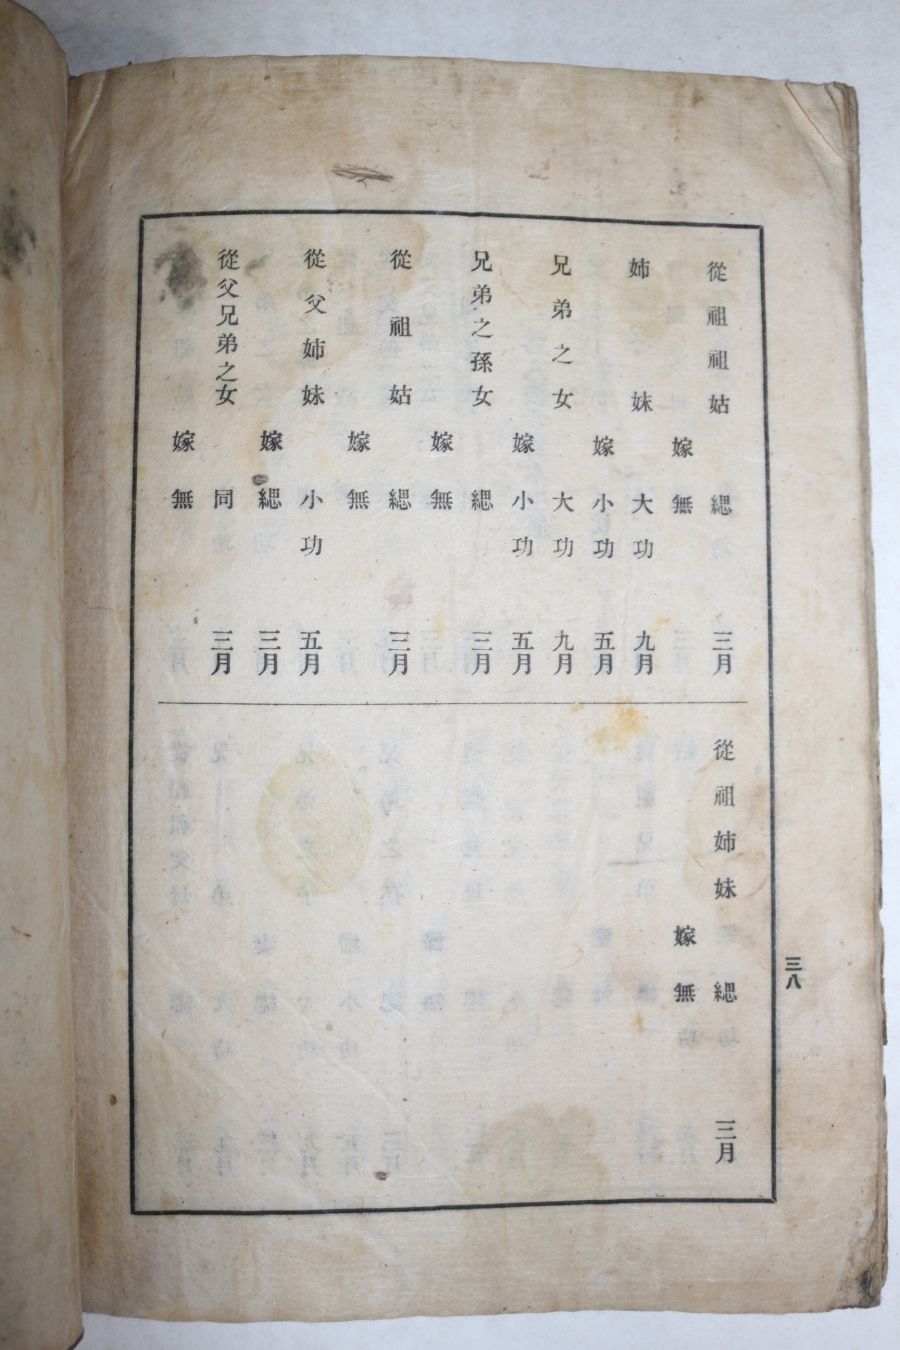 從祖祖姑 緦 三月
嫁無
姉妹 大功 九月
嫁小功 五月
兄弟之女 大功 九月
嫁小功 五月
兄弟之孫女 緦 三月
嫁無
從祖姑 緦 三月
嫁無
從父姉妹 小功 五月
嫁緦 三月
從父兄弟之女 同 三月
嫁無
從祖姉妹 緦 三月
嫁無
三八